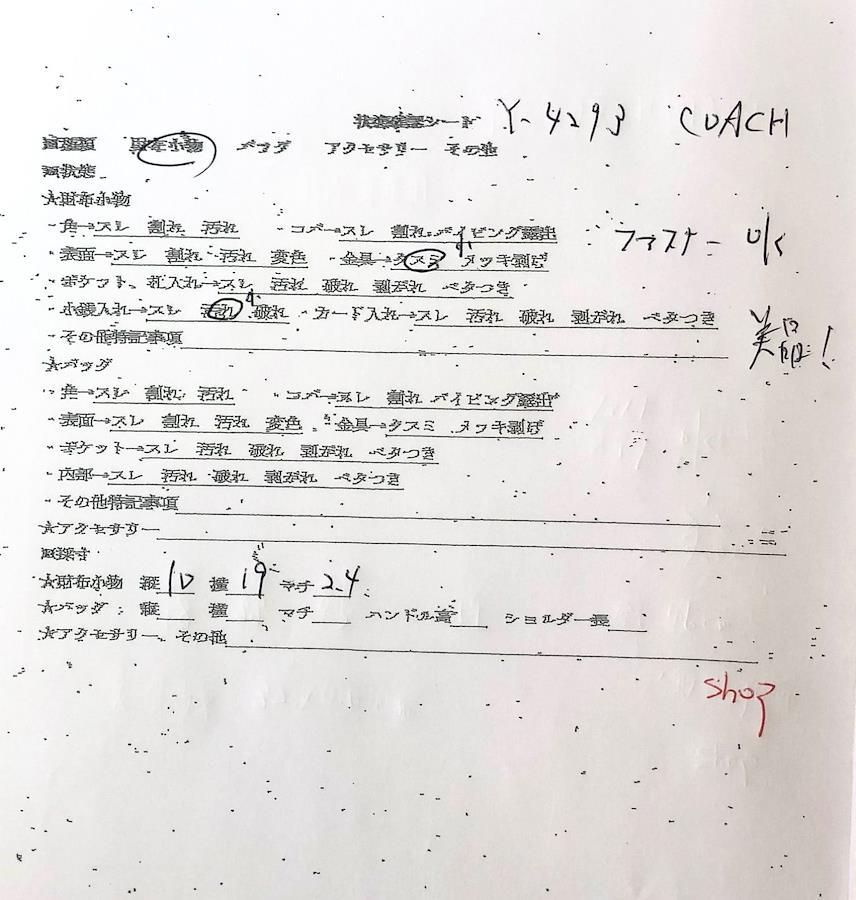 状態確認シート Y-4293 COACH
財布小物 バッグ アクセサリー その他
■状態
★財布小物
・角→スレ 割れ 汚れ ・コバ→スレ 割れ パイピング露出
ファスナー ok
・表面→スレ 割れ 汚れ 変色 ・金具→クスミ 小 メッキ剥げ
・ポケット、札入れ→スレ 汚れ 破れ 剥がれ ベタつき
・小銭入れ→スレ 汚れ 小 破れ ・カード入れ→スレ 汚れ 破れ 剥がれ ベタつき
美品!
・その他特記事項
★バッグ
・角→スレ 割れ 汚れ ・コバ→スレ 割れ パイピング露出
・表面→スレ 割れ 汚れ 変色 ・金具→クスミ メッキ剥げ
・ポケット→スレ 汚れ 破れ 剥がれ ベタつき
・内部→スレ 汚れ 破れ 剥がれ ベタつき
・その他特記事項
★アクセサリー
■採寸
★財布小物 縦 10 横 19 マチ 2.4
★バッグ: 縦 横 マチ ハンドル高 ショルダー長
★アクセサリー、その他